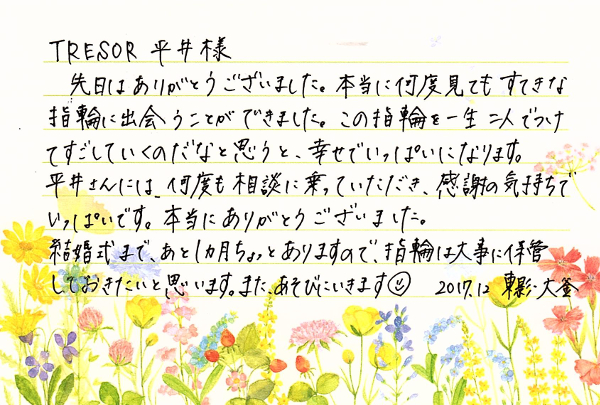 TRESOR 平井様
先日はありがとうございました。本当に何度見てもすてきな
指輪に出会うことができました。この指輪を一生二人でつけ
てすごしていくのだなと思うと、幸せでいっぱいになります。
平井さんには、何度も相談に乗っていただき、感謝の気持ちで
いっぱいです。本当にありがとうございました。
結婚式まで、あと1カ月ちょっとありますので、指輪は大事に保管
しておきたいと思います。また、あそびにいきます
2017.12 東影・大釜